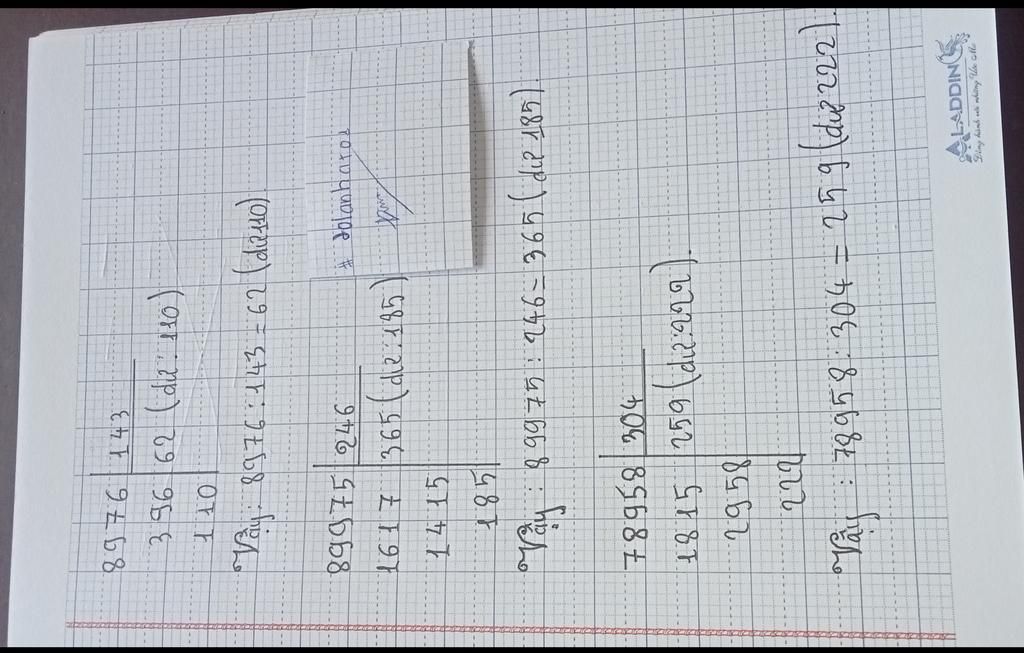 8976 143
396 62 (dư : 110)
110
Vậy : 8976 : 143 = 62 (dư 110)
# dolanharos
89975 246
1617 365 (dư : 185)
1415
185
Vậy : 89975 : 246 = 365 (dư 185)
78958 304
1815 259 (dư : 222).
2958
222
Vậy : 78958 : 304 = 259 (dư 222).
ALADDIN